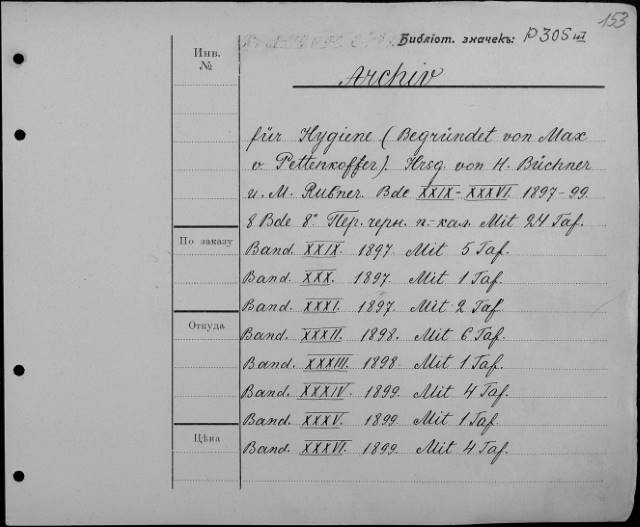 153
Библіот. значекъ: P 305 III
Инв. №
Archiv
für Hygiene (Begründet von Max
v. Pettenkoffer). Hrsg. von H. Büchner
u. M. Rubner. Bde XXIX-XXXVI. 1897-99.
8 Bde 8° Пер. черн. п.-кал. Mit 24 Taf.
По заказу
Band. XXIX. 1897. Mit 5 Taf.
Band. XXX. 1897. Mit 1 Taf.
Band. XXXI. 1897. Mit 2 Taf.
Откуда
Band. XXXII. 1898. Mit 6 Taf.
Band. XXXIII. 1898. Mit 1 Taf.
Band. XXXIV. 1899. Mit 4 Taf.
Band. XXXV. 1899. Mit 1 Taf.
Цѣна
Band. XXXVI. 1899. Mit 4 Taf.